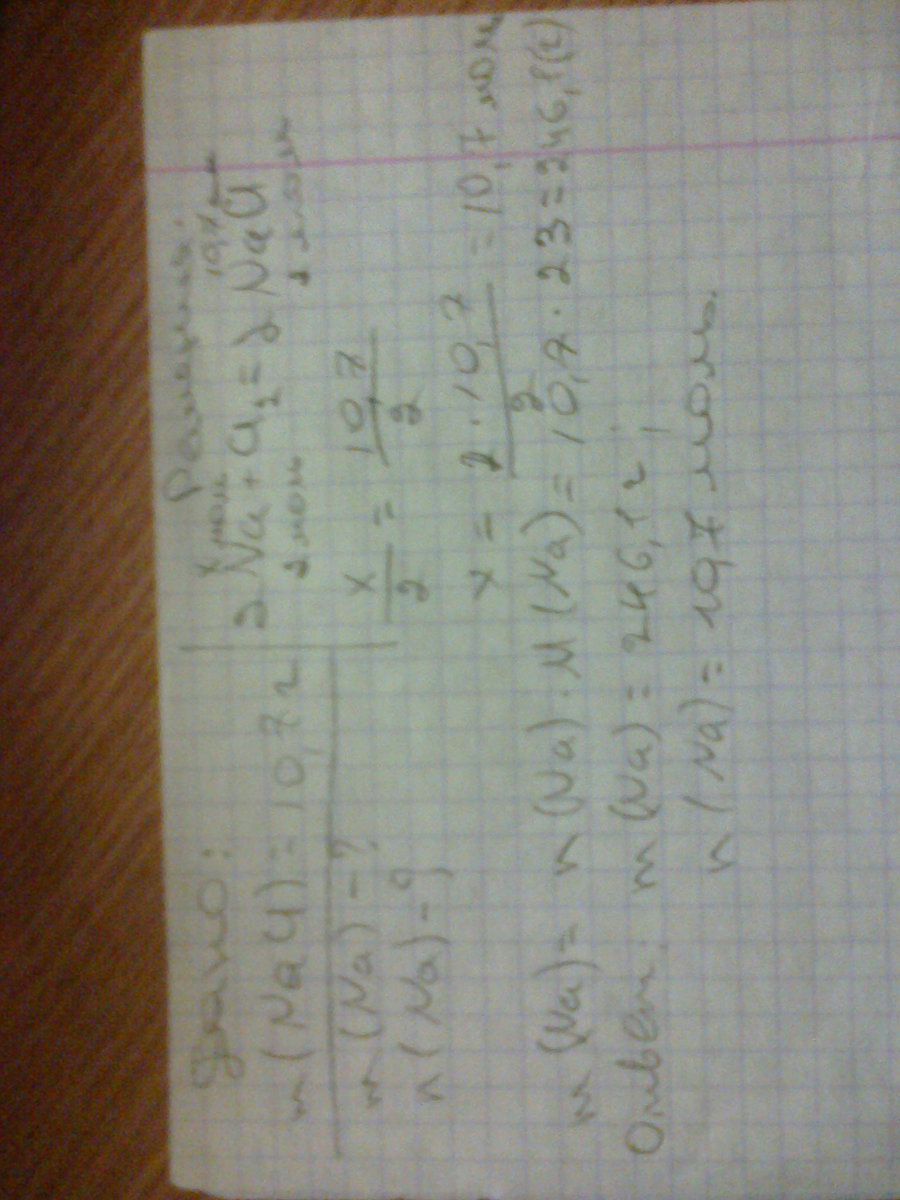 Дано:
m(NaCl)=10,7г
m(Na)-?
n(Na)-?
Решение:
x моль 10,7 моль
2Na+Cl₂=2NaCl
2 моль 2 моль
x/2 = 10,7/2
x = 2·10,7/2 = 10,7 моль
m (Na)= n(Na)·M(Na)=10,7·23=246,1(г)
Ответ: m(Na)=246,1г;
n(Na)=10,7моль.